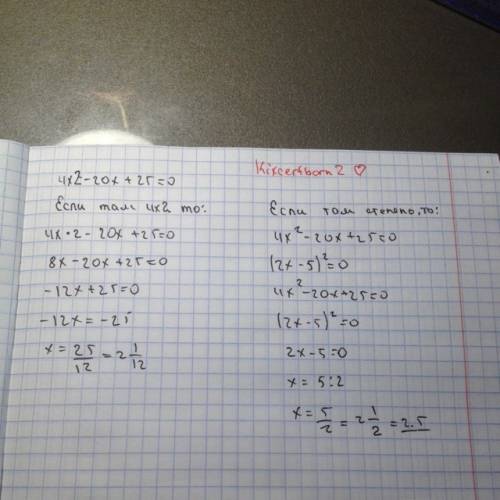 Kixcerkborn 2 ♡
4x2-20x+25=0
Если там 4x2 то:
4x·2-20x+25=0
8x-20x+25=0
-12x+25=0
-12x=-25
x=25/12=2 1/12
Если там степень, то:
4x²-20x+25=0
(2x-5)²=0
4x²-20x+25=0
(2x-5)²=0
2x-5=0
x=5:2
x=5/2=2 1/2=2.5